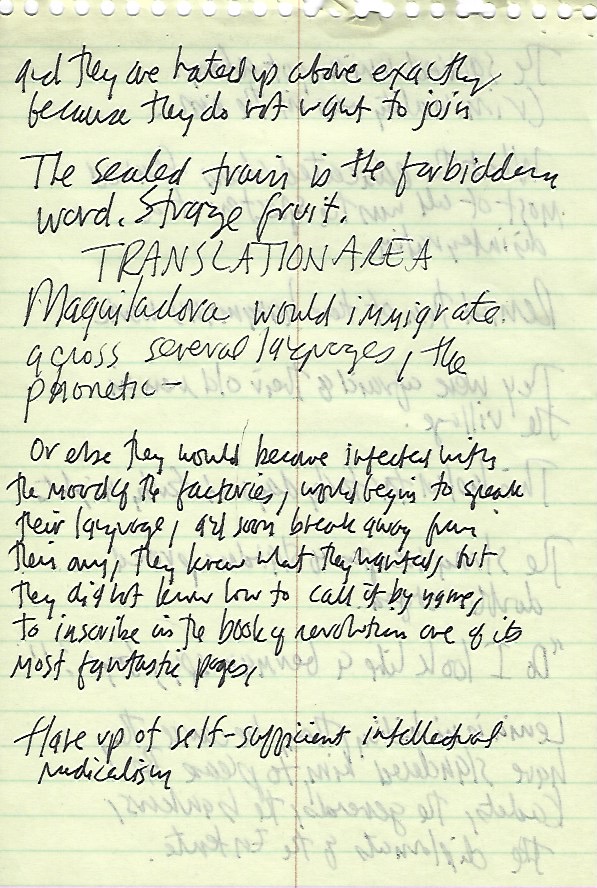 and they are hated up above exactly
because they do not want to join
The sealed train is the forbidden
word. Strange fruit.
TRANSLATION AREA
Maquiladora would immigrate
across several languages, the
phonetic—
Or else they would become infected with
the mood of the factories, would begin to speak
their language, and soon break away from
their own, they knew what they wanted, but
they did not know how to call it by name,
to inscribe in the book of revolution one of its
most fantastic pages,
flare up of self-sufficient intellectual
radicalism